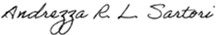 Andrezza R. L. Sartori